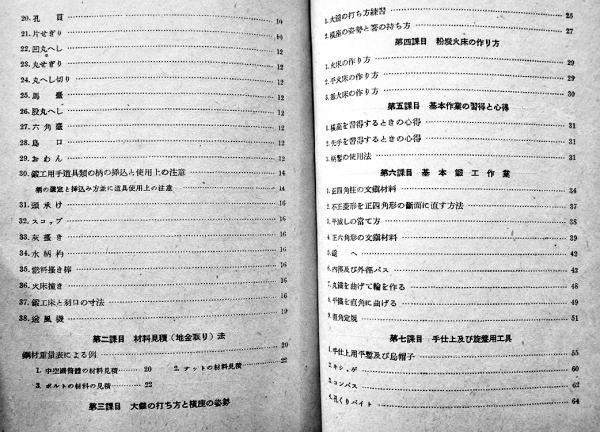 20. 孔貫 10
21. 片せぎり 12
22. 凹丸へし 12
23. 丸せぎり 12
24. 丸へし切り 12
25. 馬臺 12
26. 股丸へし 12
27. 六角臺 12
28. 鳥口 12
29. おわん 12
30. 鍛工用手道具類の柄の挿込と使用上の注意 14
柄の選定と挿込み方並に道具使用上の注意 14
31. 頭承け 16
32. スコップ 16
33. 灰掻き 16
34. 水柄杓 16
35. 燃料掻き棒 16
36. 火床掻き 16
37. 鍛工床と羽口の寸法 16
38. 送風機 19
第二課目 材料見積(地金取り)法
鋼材重量表による例 20
1. 中空圓筒體の材料見積 20 2. ナットの材料見積 22
3. ボルトの材料の見積 22
第三課目 大鎚の打ち方と横座の姿勢
1. 大鎚の打ち方練習 25
2. 横座の姿勢と箸の持ち方 27
第四課目 粉炭火床の作り方
1. 火床の作り方 29
2. 平火床の作り方 29
3. 釜火床の作り方 30
第五課目 基本作業の習得と心得
1. 横座を習得するときの心得 31
2. 先手を習得するときの心得 31
3. 柄鏨の使用法 31
第六課目 基本鍛工作業
1. 正四角柱の文鎭材料 34
2. 不正菱形を正四角形の斷面に直す方法 37
3. 平減しの當て方 38
4. 正六角形の文鎭材料 39
5. へ 43
6. 内部及び外徑パス 43
7. 丸鐵を曲げて輪を作る 48
8. 平鐵を直角に曲げる 49
9. 直角定規 51
第七課目 手仕上及び旋盤用工具
1. 手仕上用平鏨及び烏帽子 55
2. キシゲ 60
3. コンパス 62
4. 孔くりバイト 64